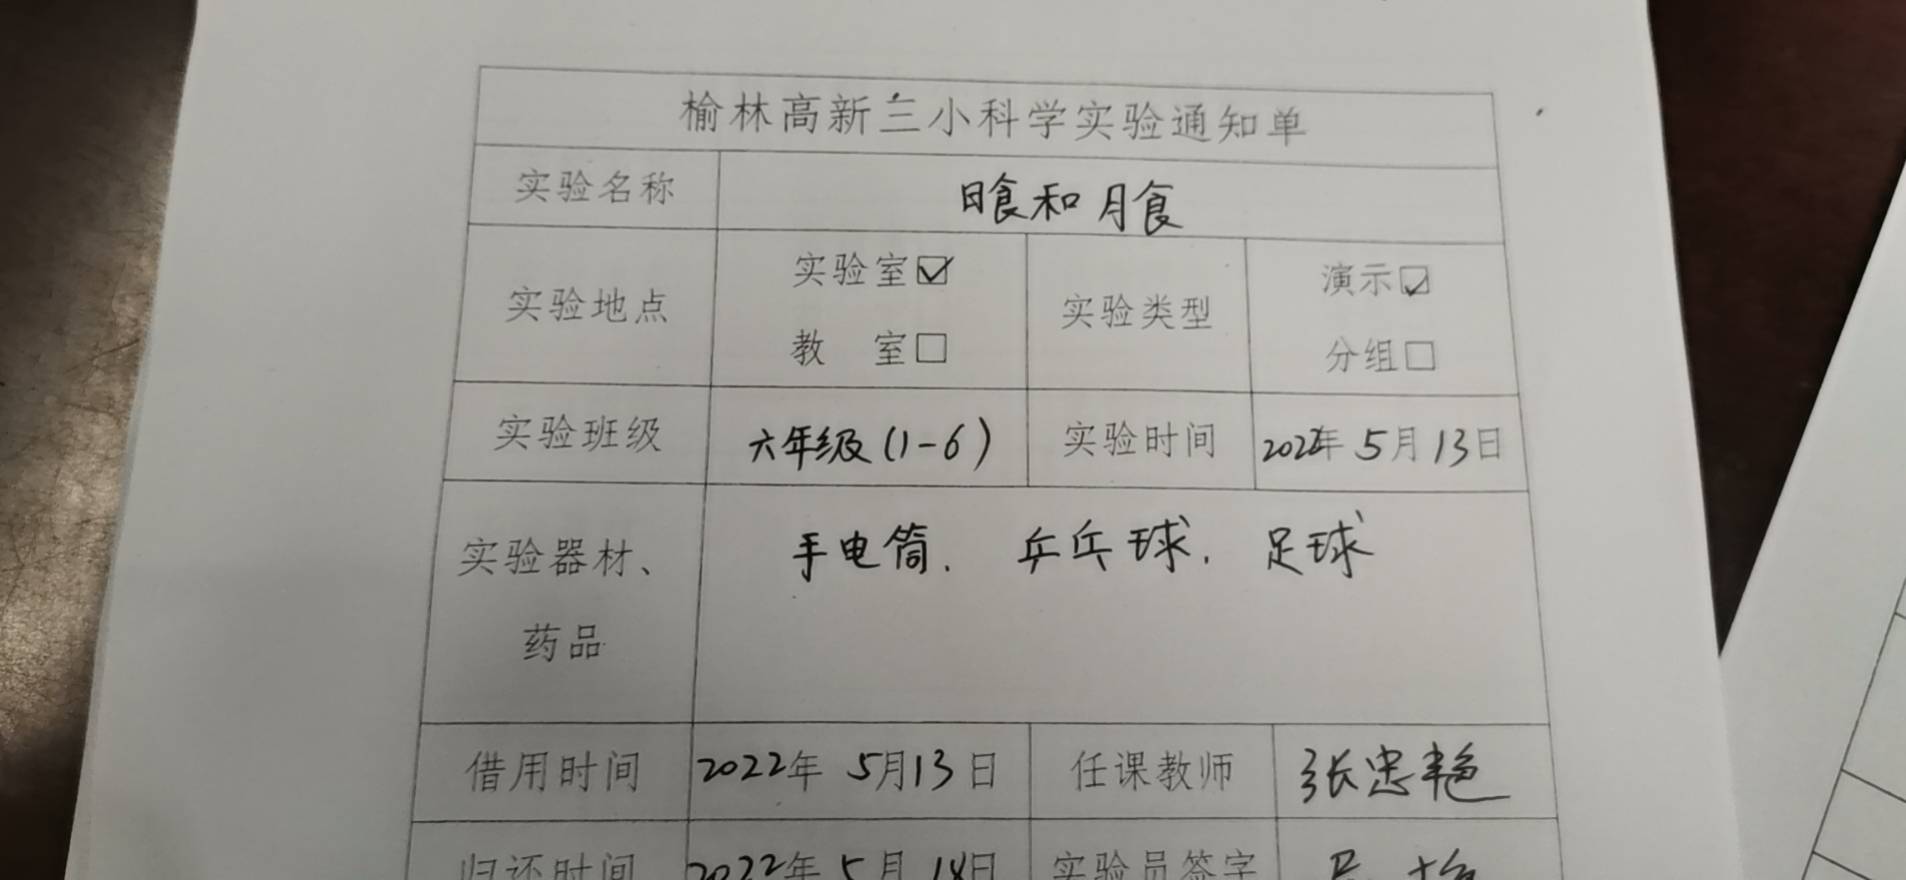 榆林高新三小科学实验通知单
实验名称 日食和月食
实验地点 实验室☑ 教 室☐ 实验类型 演示☑ 分组☐
实验班级 六年级(1-6) 实验时间 2022年5月13日
实验器材、药品 手电筒. 乒乓球. 足球
借用时间 2022年 5月13日 任课教师 张忠艳
归还时间 2022年5月 日 实验员签字